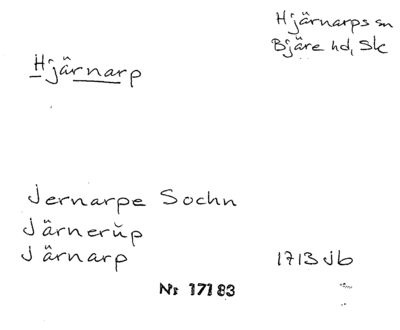 Hjärnarps sn
Bjäre hd, Sk
Hjärnarp
Jernarpe Sochn
Järnerŭp
Järnarp 1713 jb
Nr 17183